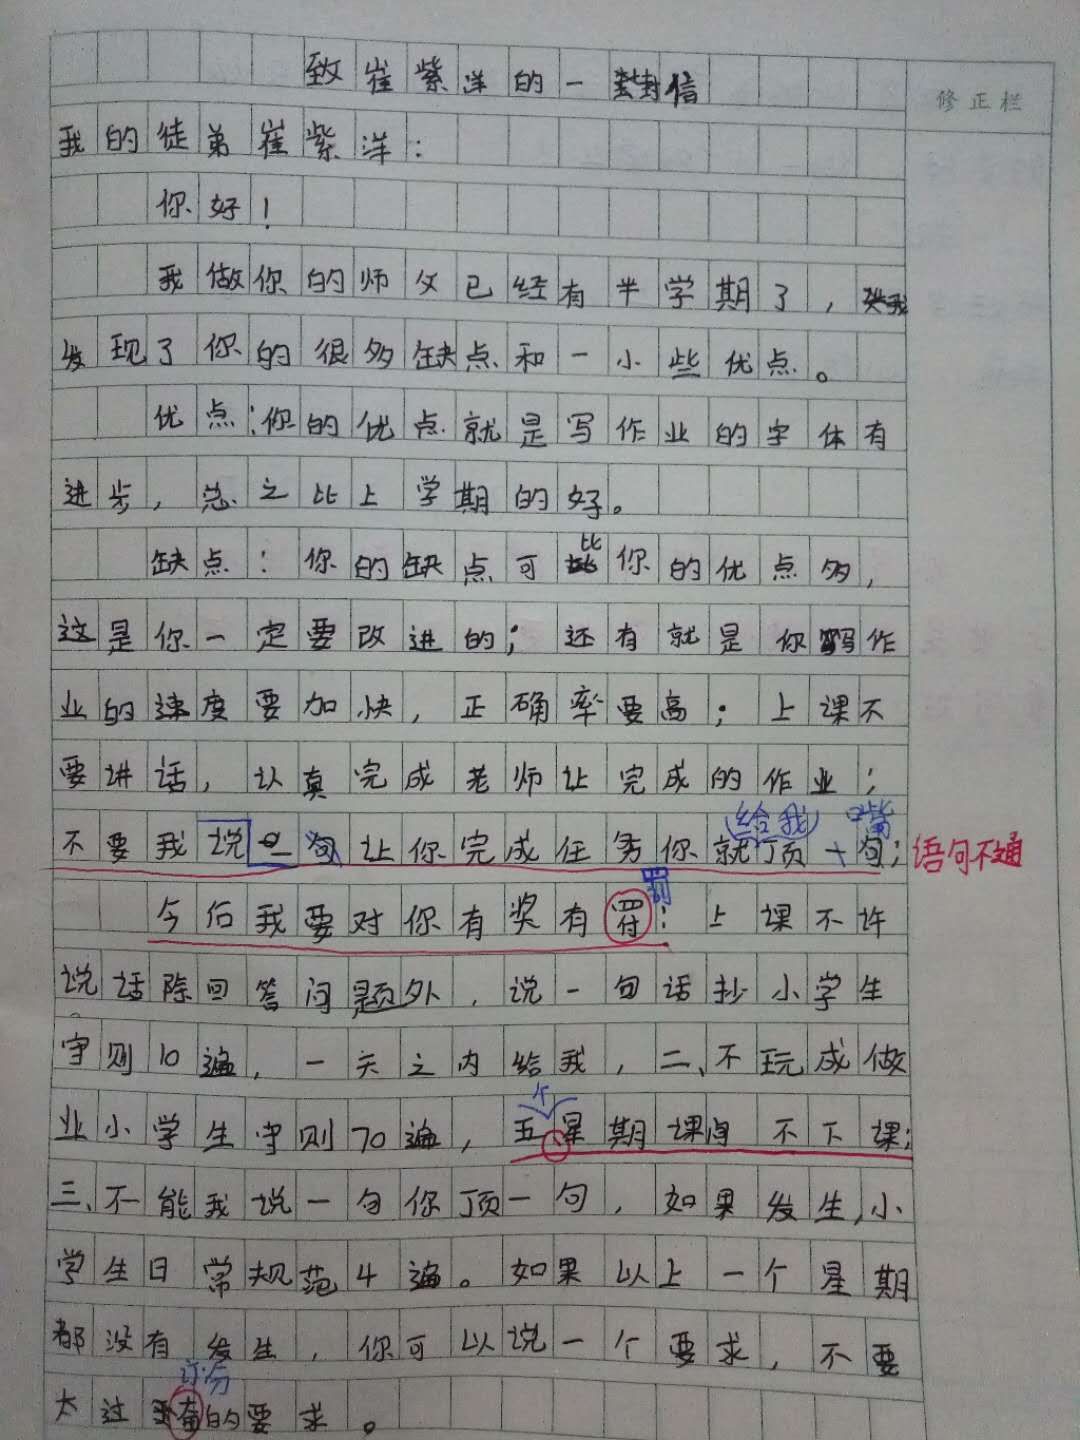 致崔紫洋的一封信
修正栏
我的徒弟崔紫洋：
你好！
我做你的师父已经有半学期了，我
发现了你的很多缺点和一小些优点。
优点：你的优点就是写作业的字体有
进步，总之比上学期的好。
缺点：你的缺点可比你的优点多，
这是你一定要改进的；还有就是你写作
业的速度要加快，正确率要高；上课不
要讲话，认真完成老师让完成的作业；
给我 嘴
不要我说一句让你完成任务你就顶十句；语句不通
罚
今后我要对你有奖有符：上课不许
说话除回答问题外，说一句话抄小学生
守则10遍，一天之内给我，二、不玩成做
个
业小学生守则70遍，五、星期课间不下课；
三、不能我说一句你顶一句，如果发生，小
学生日常规范4遍。如果以上一个星期
都没有发生，你可以说一个要求，不要
过分
太过奋的要求。